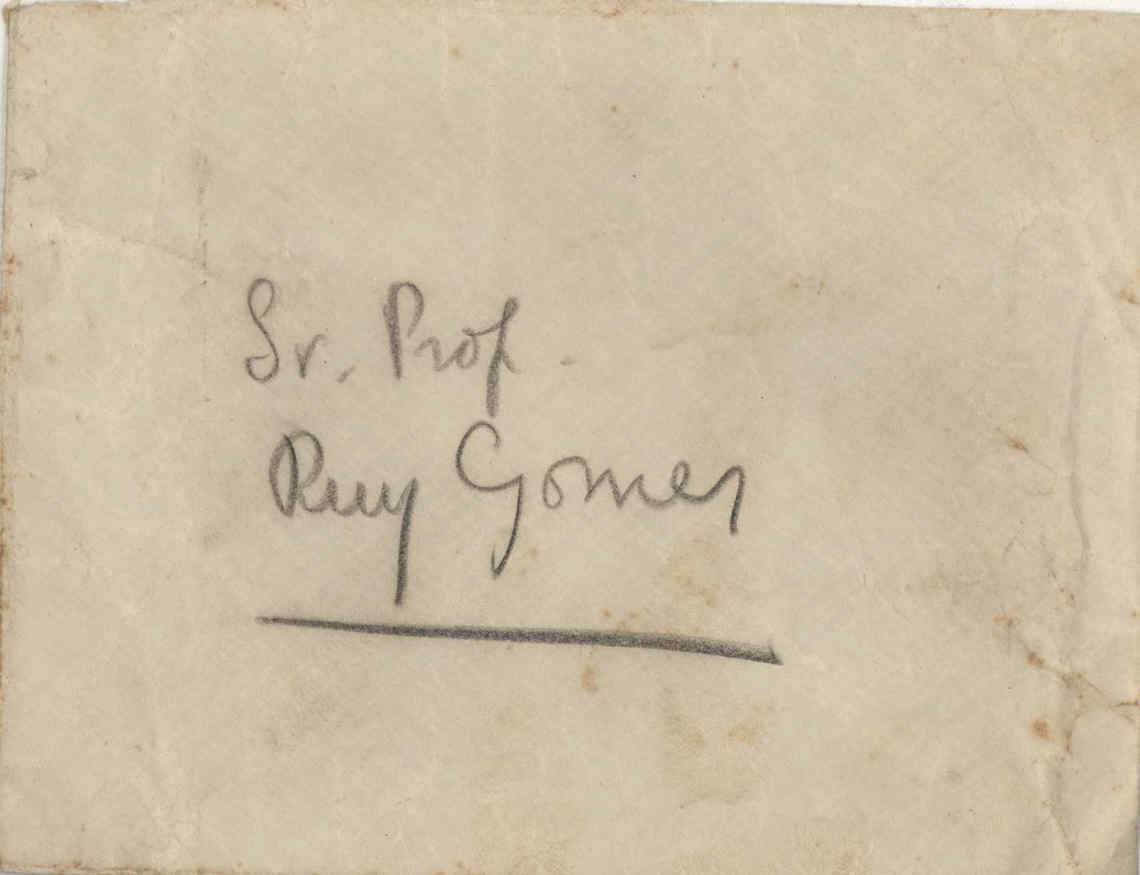 Sr. Prof.
Ruy Gomes